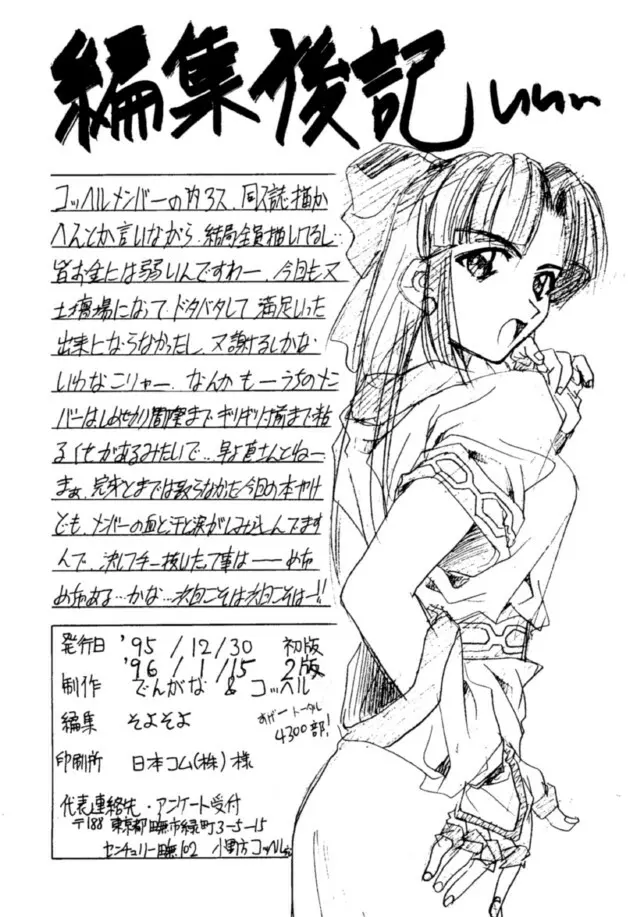 編集後記 いいい
コッヘルメンバーの 同人誌描か
へんとか言いながら、結局全員描いてるし…
皆お金には弱いんですわー、今回も又
土壇場になって、ドタバタして、満足いった
出来にならなかったし、又謝るしかな
いわなこりゃー、なんか もー うちのメン
バーは〆切り間際まで、ギリギリ寸前まで粘
るくせがあるみたいで…早よ直さんとねー
まぁ、完ペキとまでは至らなかった今回の本やけ
ども、メンバーの血と汗と涙がしみ込んでます
んで、決して手ー抜いたって事は――めちゃ
めちゃある…かな…次回こそは次回こそはー!!
発行日 '95 / 12 / 30 初版
'96 / 1 / 15 2版
制作 でんがな & コッヘル
編集 そよそよ
すげートータル
4300部!
印刷所 日本コム(株) 様
代表連絡先・アンケート受付
〒188 東京都田無市緑町3-5-15
センチュリー田無102 小野方 コッヘル